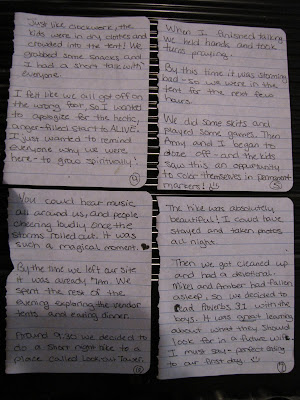 Just like clockwork, the
kids were in dry clothes and
crowded into the tent! We
grabbed some snacks and
I had a short talk with
everyone.
I felt like we all got off on
the wrong foot, so I wanted
to apologize for the hectic,
anger-filled start to ALIVE.
I just wanted to remind
everyone why we were
here - to grow spiritually!
When I finished talking
we held hands and took
turns praying.
By this time it was storming
bad - so we were in the
tent for the next few
hours.
We did some skits and
played some games. Then
Amy and I began to
doze off - and the kids
saw this an opportunity
to color themselves in permanent
markers!
5
You could hear music
all around us, and people
cheering loudly once the
storms rolled out. It was
such a magical moment.
By the time we left our site
it was already 7pm. We
spent the rest of the
evening exploring the vendor
tents, and eating dinner.
Around 9:30 we decided to
do a short night hike to a
place called Lookout Tower.
The hike was absolutely
beautiful! I could have
stayed and taken photos
all night.
Then we got cleaned up
and had a devotional.
Mike and Amber had fallen
asleep, so we decided to
read Proverbs 31 with the
boys. It was great learning
about what they should
look for in a future wife.
I must say - perfect ending
to our first day.
7